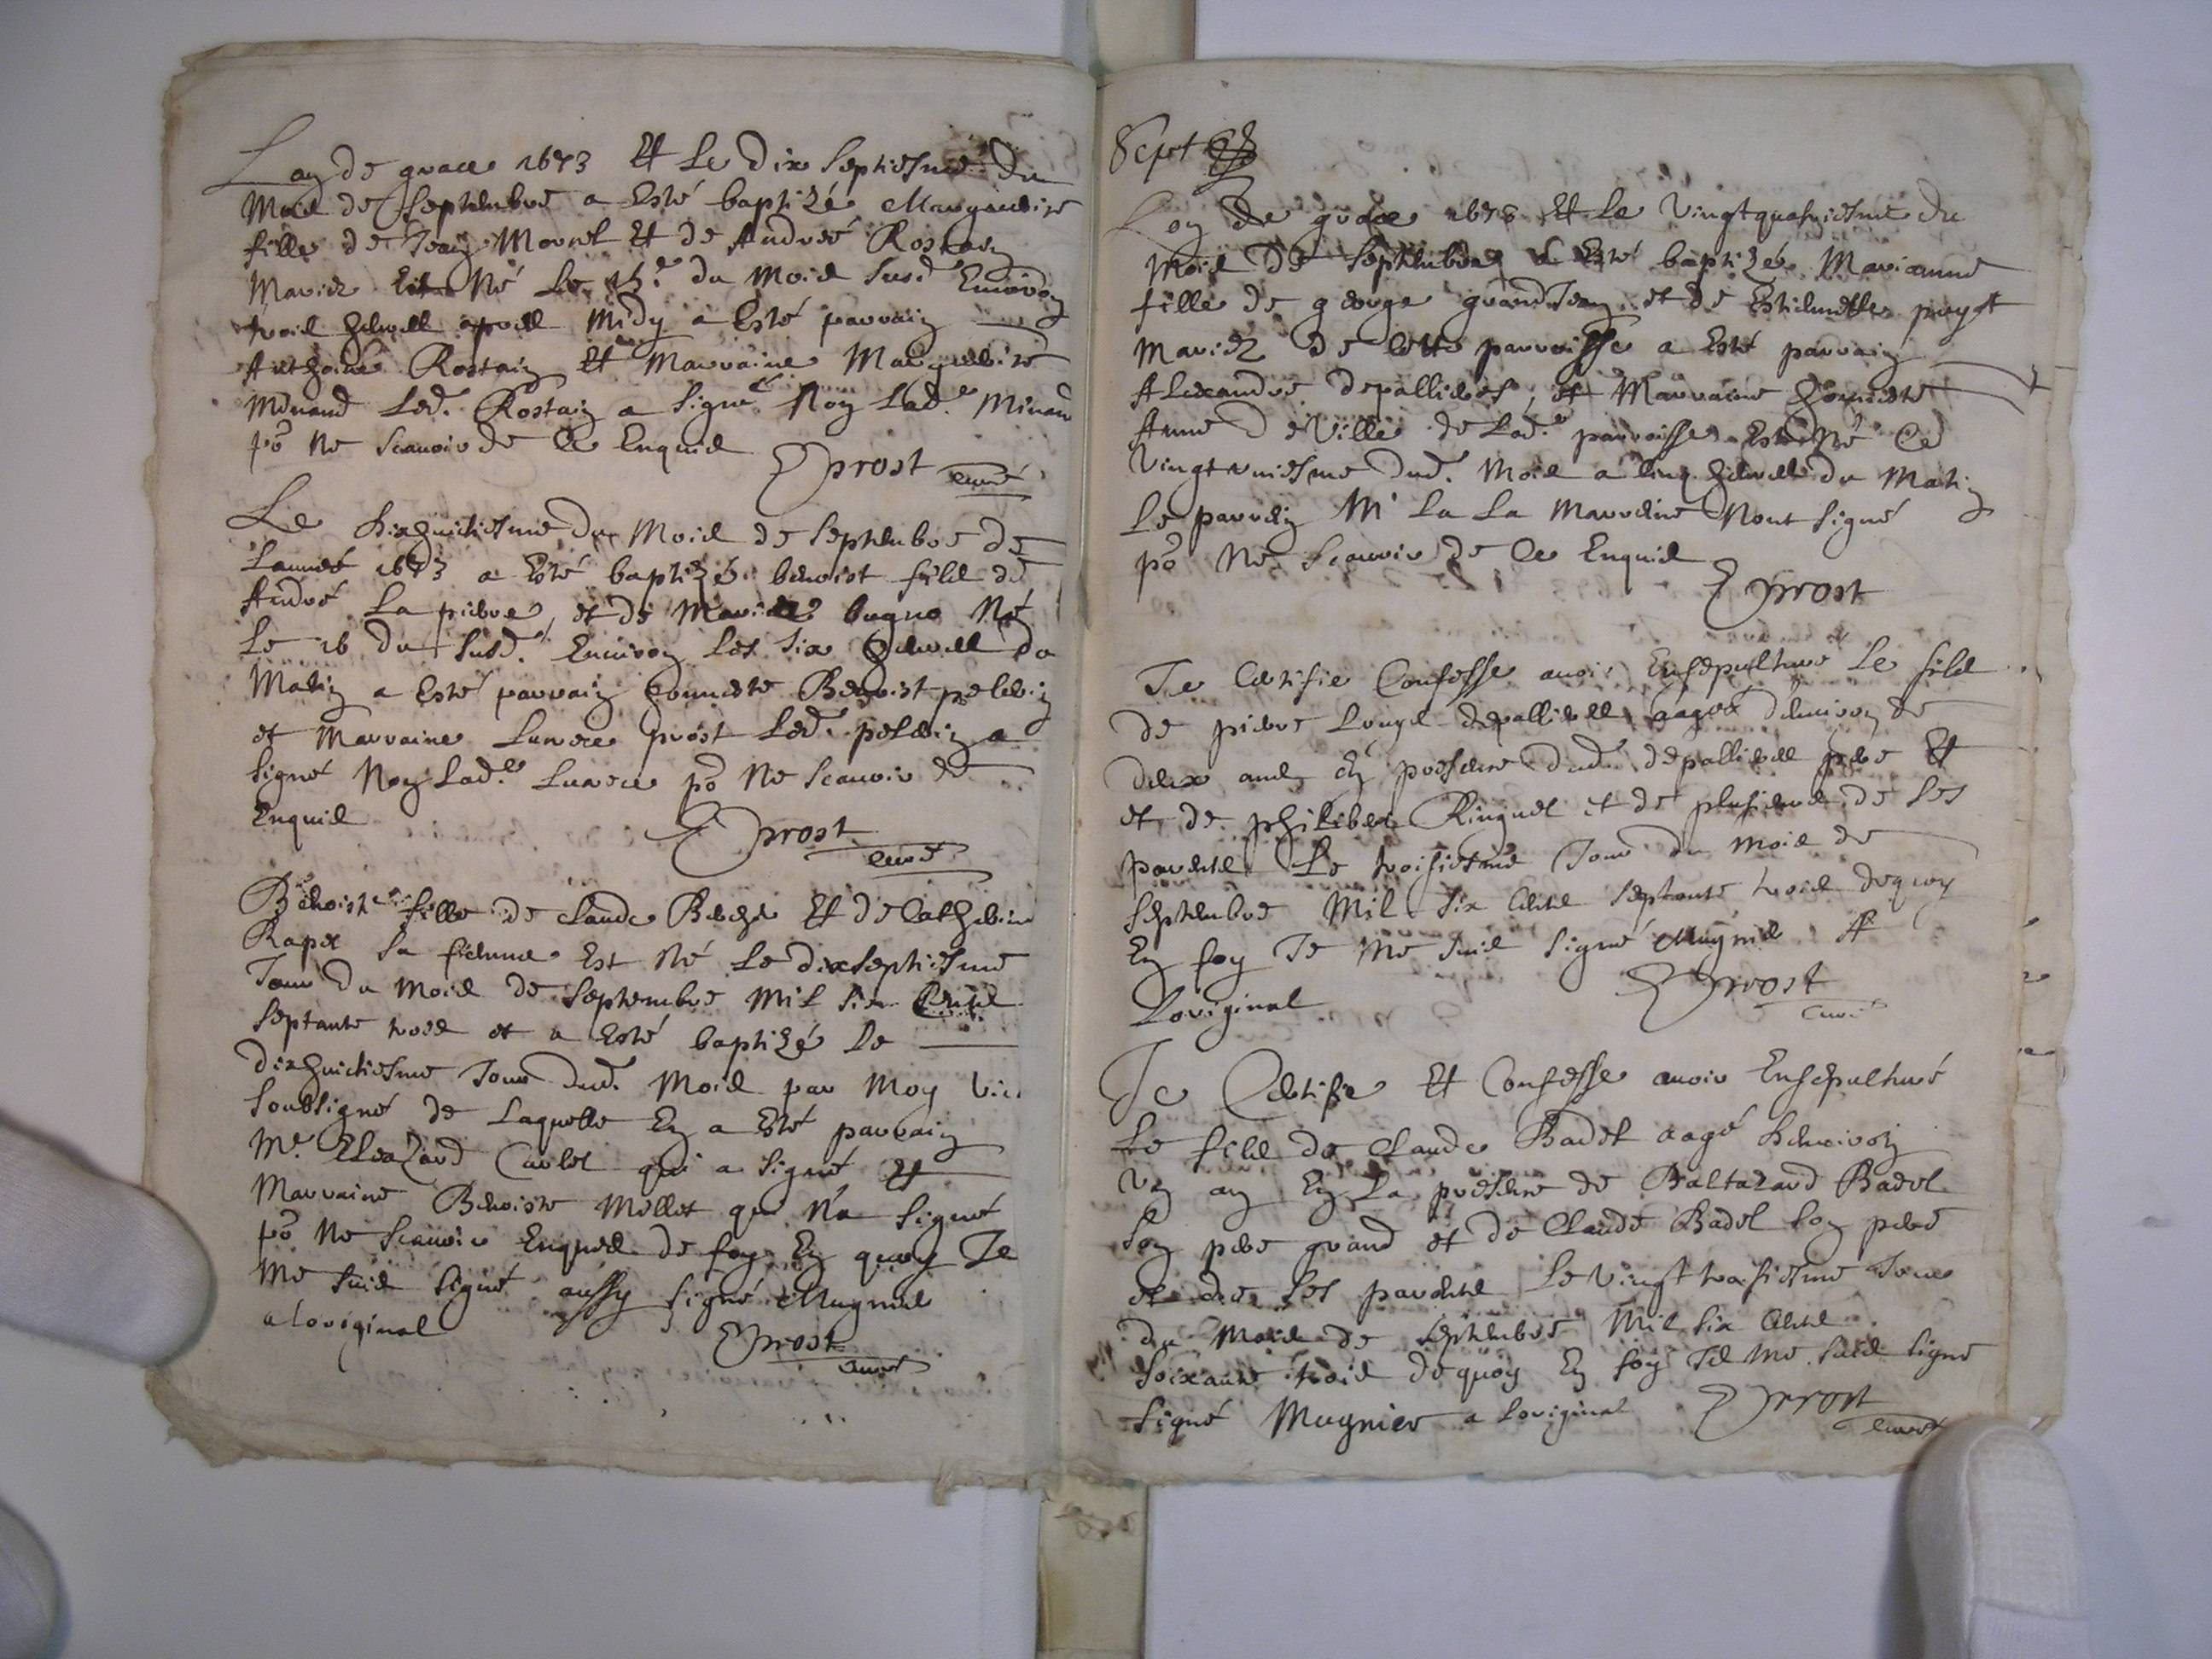 Lan de grace 1673 Et Le dix septiesme du
Mois de septembre a Esté baptizé Marguerite
fille de Jean Morel Et de André Rostain
Mariez Est Né Le 15e du Mois susd. Environ
trois heures apres Midy a Esté parrain
Anthoine Rostain Et Marraine Marguerite
Minand Led. Rostain a signé Non Lad.e Minand
po Ne scauoir de Ce Enquis
Prost curé
Le dixhuictiesme du Mois de septembre de
Lannée 1673 a Esté baptizé benoist fils de
André La pierre, et de Marie bugno Né
Le 16 du susd. Environ Les six heures du
Matin a Esté parrain honneste Benoist pelerin
et Marraine Lucrece prost Led. pelerin a
signé Non Lad.e Lucrece po Ne scauoir de
Enquis
Prost
curé
Benoiste fille de claude Berche Et de Catherine
Rapet sa femme Est Né Le dixseptiesme
Jour du Mois de septembre Mil six Cents
septante trois et a Esté baptizé Le
dixhuictiesme Jour dud. Mois par Moy vic.
soubsigné de Laquelle En a Esté parrain
Me. Eleazard Carlet qui a signé Et
Marraine Benoiste Mellet qui Na signé
po Ne scauoir Enquise de foy En quoy Je
Me suis signé aussy signé Mugnier
a Loriginal
Prost
curé
Sept
Lan De grace 1673 Et Le vingtquatriesme du
Mois De septembre a Esté baptizée Marianne
fille de george grandJean et de Estiennette puget
Mariez de Cette parroisse a Esté parrain
Alexandre depallieres, et Marraine honneste
Anne Deville de Lad.e parroisse Est Né Ce
vingtuniesme dud. Mois a cinq heures du Matin
Le parrain Ni La La Marraine Nont signé
po Ne scauoir De Ce Enquis
Prost
Je Certifie Confesse auoir Ensepulturé Le fils
de pierre Louys depallieres aagé denviron de
deux ans En presence dud. depallieres pere Et
et de philibert Ringuet et de plusieurs de ses
parents Le troisiesme Jour du Mois de
septembre Mil six Cents septante trois dequoy
En foy Je Me suis signé Mugnier A
Loriginal
Prost
curé
Je Certifie Et Confesse auoir Ensepulturé
Le fils de Claude Badel aagé denviron
vn an En La presence de Baltazard Badel
son pere grand et de Claude Badel son pere
et de ses parents Le vingt troisiesme Jour
du Mois de septembre Mil six Cents
soixante trois dequoy En foy Je Me suis signé
signé Mugnier a Loriginal
Prost
curé